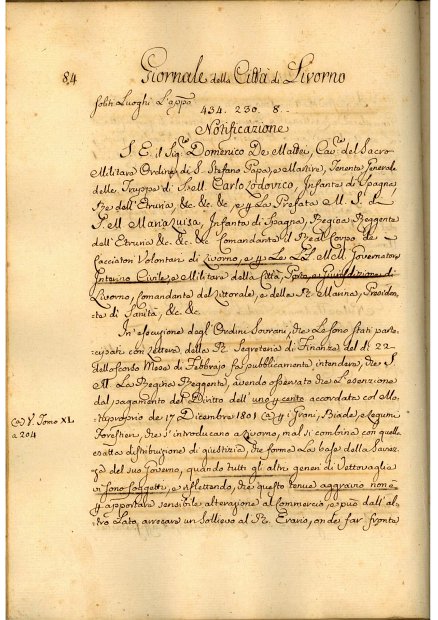 84
Giornale della Città di Livorno
soliti Luoghi L'app.
434. 230. 8.
Notificazione
S. E. il Sig. Domenico De Mattei, Cav. del Sacro
Militare Ordine di S. Stefano Papa, e Martire, Tenente Generale
delle Truppe di S. M. Carlo Lodovico, Infante di Spagna
Re dell'Etruria &c. &c. &c. e p. la Prefata M. S. di
S. M. Maria Luisa, Infanta di Spagna, Regina Reggente
dell'Etruria &c. &c. &c. Comandante il Real Corpo de
Cacciatori Volontari di Livorno, e p. Le LL. MM. Governatore
Interino Civile, e Militare della Città, Porto, e Giurisdizione di
Livorno, Comandante del Littorale, e della R. Marina, Presiden.
te di Sanità, &c. &c.
In esecuzione degl'Ordini Sovrani, che Le sono stati parte.
cipati con Lettera della R. Segreteria di Finanze del dì 22
dello scorso Mese di Febbrajo fà pubblicamente intendere, che S.
M. La Regina Reggente, avendo osservato che L'esenzione
dal pagamento del Diritto dell'uno p. cento accordata col Mo.
tuproprio de' 17 Dicembre 1801 (a) p. i Grani, Biade, e Legumi
Forestieri, che s'introducano a Livorno, mal si combina con quella
esatta distribuzione di giustizia, che forma La base della Saviez.
za del suo Governo, quando tutti gli altri generi di Vettovaglia
vi sono soggetti, e riflettendo, che questo tenue aggravio non è
p. apportare sensibile alterazione al Commercio, e può dall'al.
tro Lato arrecare un sollievo al R. Erario, onde far fronte
(a) V. Tomo XL.
a 204